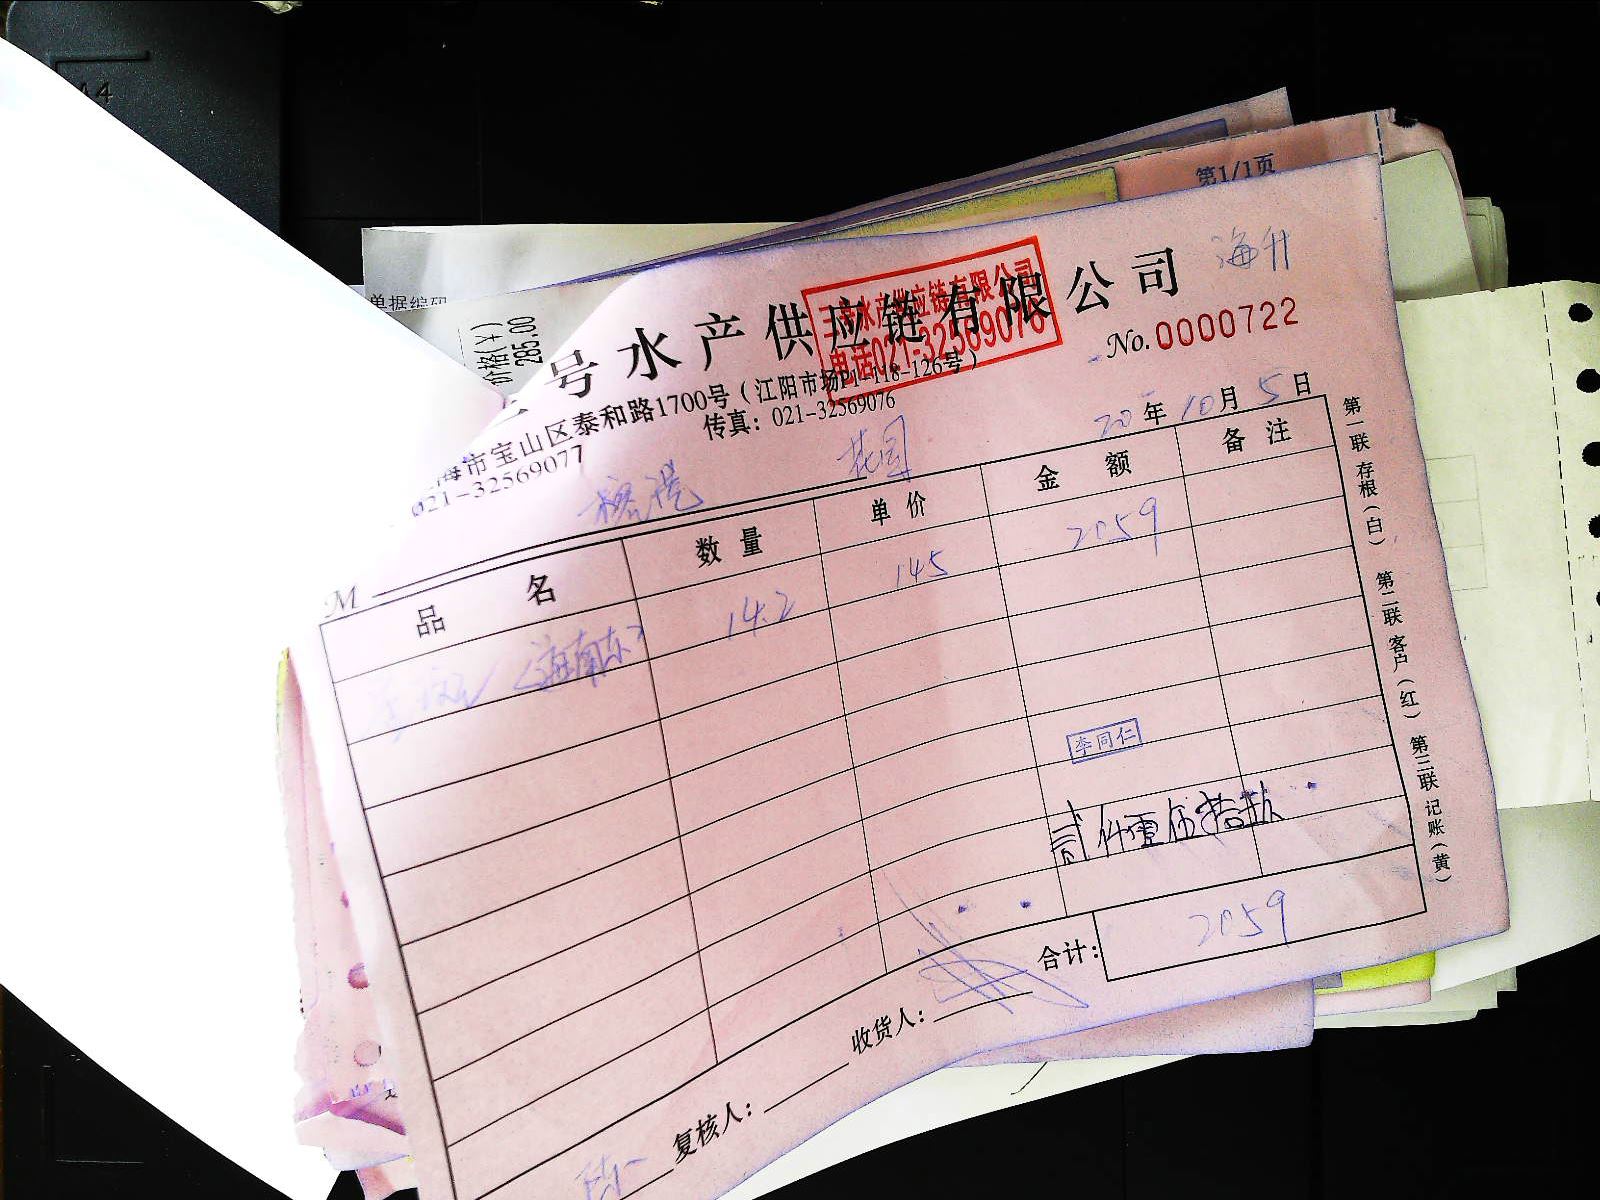 A4
第1/1页
单据编码
价格(¥)
285.00
海升
号水产供应链有限公司
水产供应链有限公司
电话021-32569076
No.0000722
海市宝山区泰和路1700号（江阳市场P1-118-126号）
021-32569077 传真：021-32569076
20 年 10 月 5 日
花园
M
品名 数量 单价 金额 备注
14.2 145 2059
李同仁
贰仟零伍拾玖
合计： 2059
收货人：
复核人：
第一联 存根（白） 第二联 客户（红） 第三联 记账（黄）